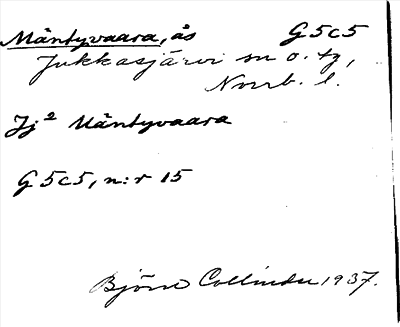 Mäntyvaara, ås G5c5
Jukkasjärvi sn o. tg,
Norrb. l.
Jj² Mäntyvaara
G5c5, n:r 15
Björn Collinder 1937.